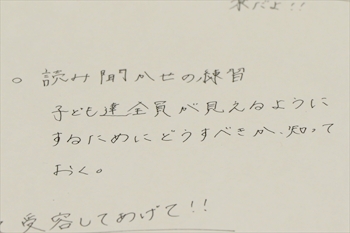 来だよ!!
○ 読み聞かせの練習
子ども達全員が見えるように
するためにどうすべきか、知って
おく。
・受容してあげて!!